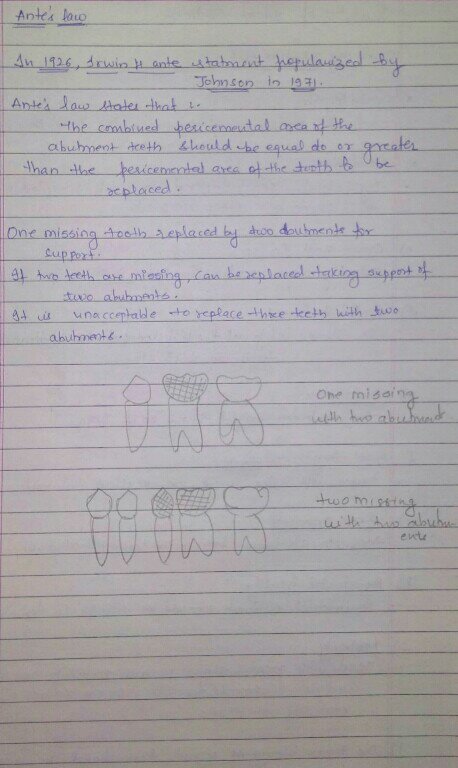 Ante's law
In 1926, Irwin H ante statment popularized by
Johnson in 1971.
Ante's law states that :-
The combined pericemental area of the
abutment teeth should be equal do or greater
than the pericemental area of the tooth to be
replaced.
One missing tooth replaced by two abutments for
support.
If two teeth are missing, can be replaced taking support of
two abutments.
It is unacceptable to replace three teeth with two
abutments.
One missing
with two abutment
two missing
with two abutm
ents